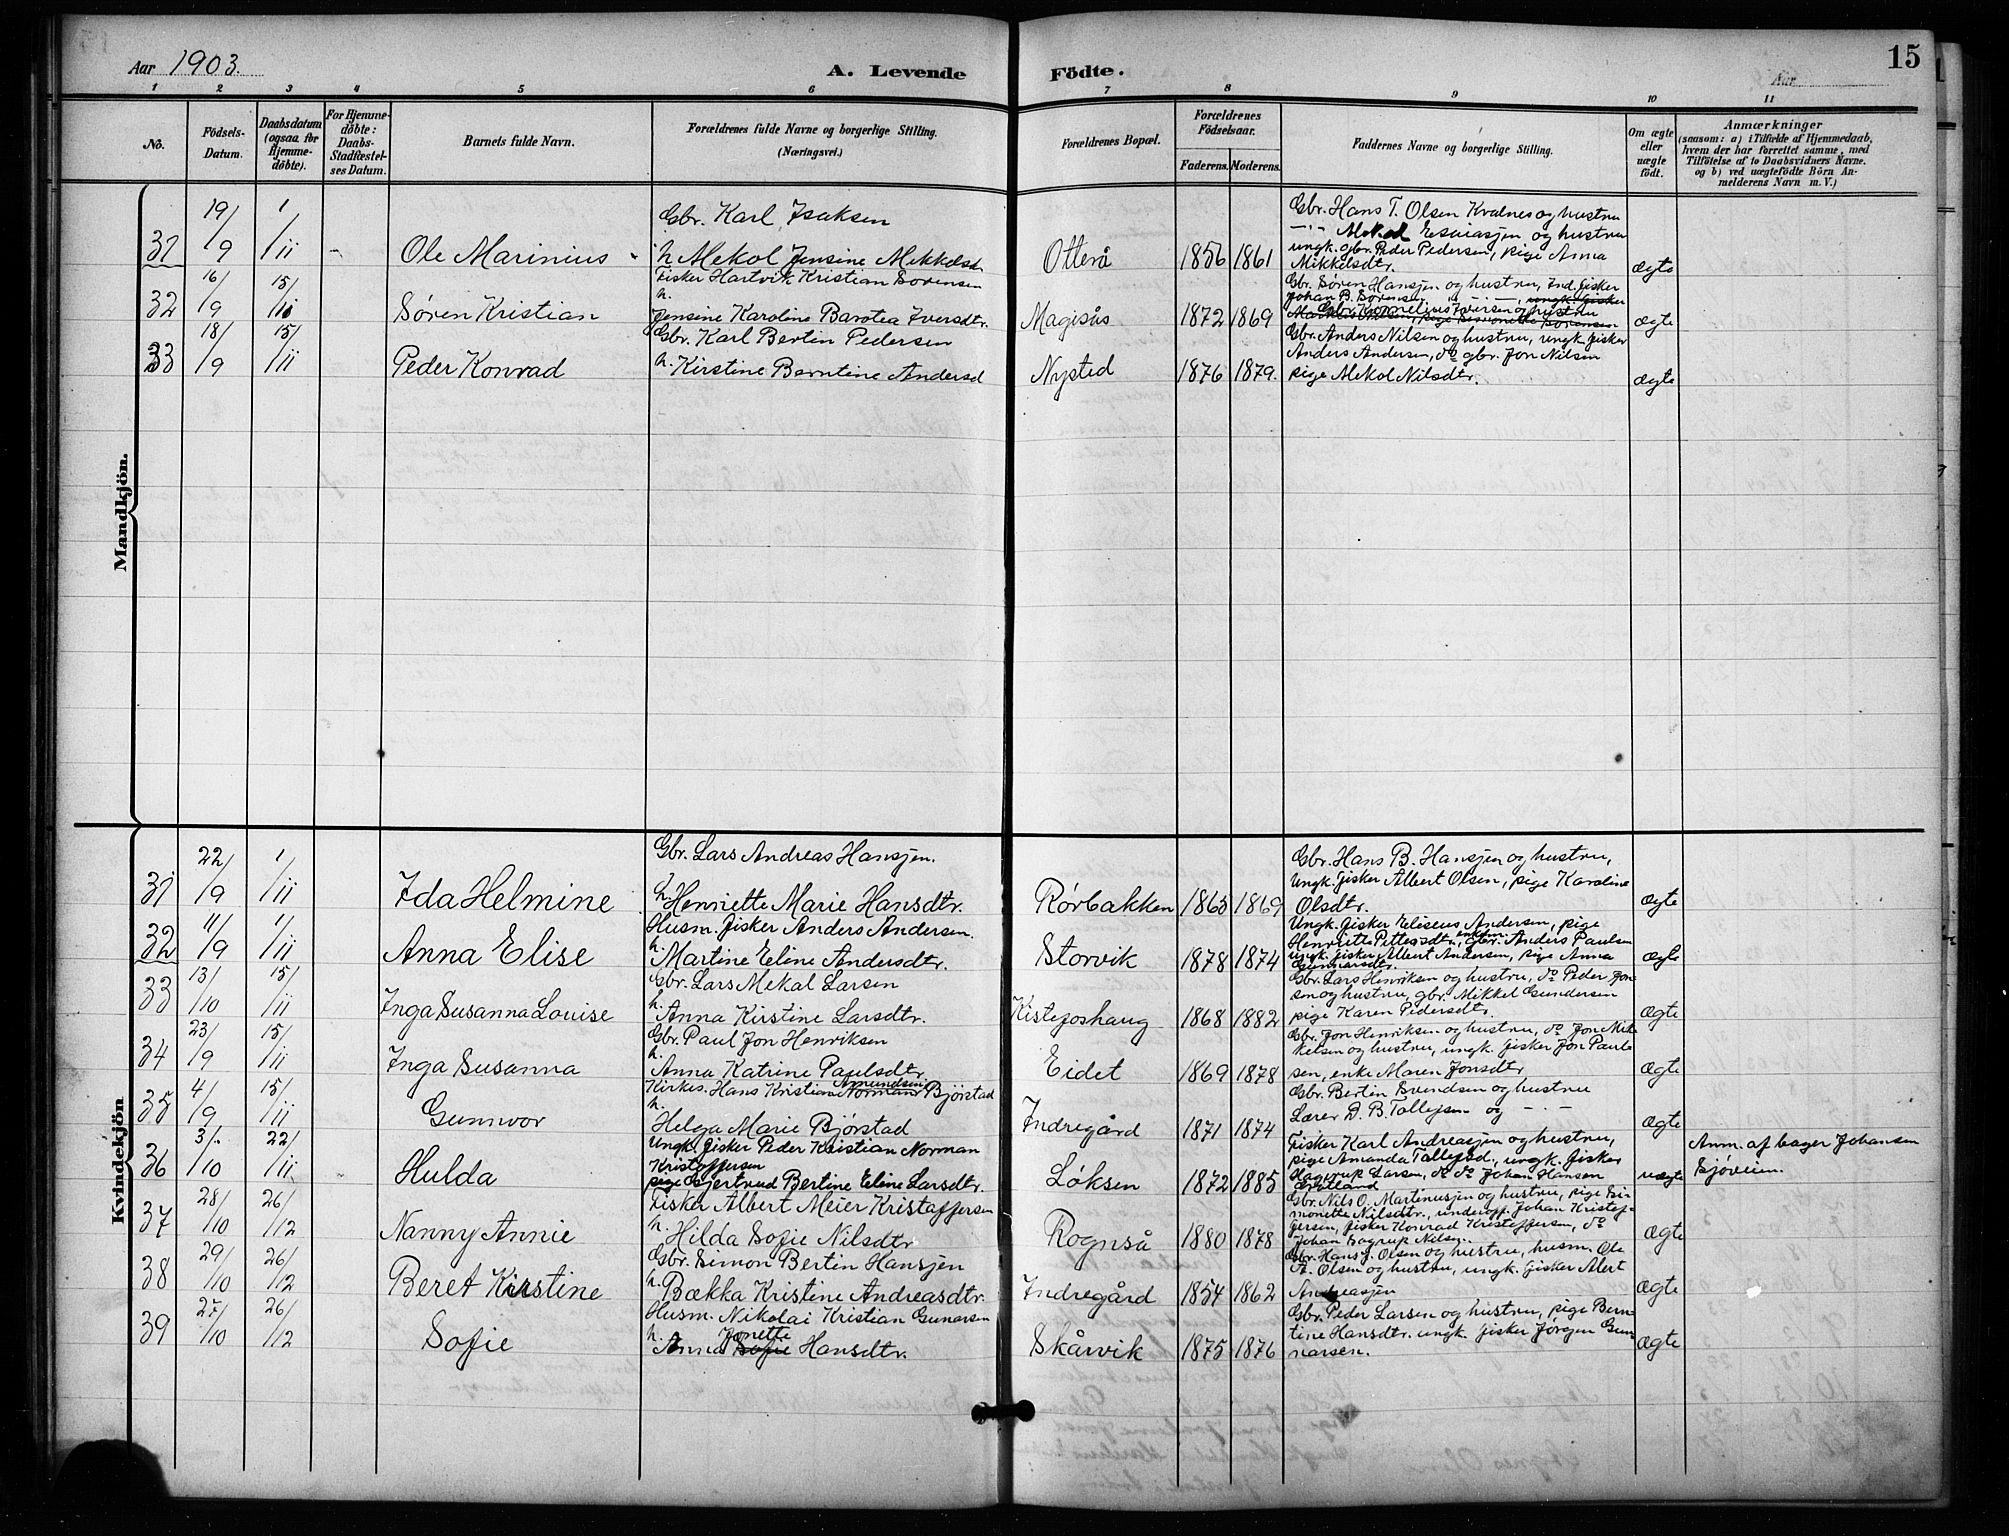 Aar 1903. A. Levende Födte. Aar 15
1 2 3 4 5 6 7 8 9 10 11
No. Födsels-Datum. Daabsdatum (ogsaa for Hjemmedöbte). For Hjemmedöbte: Daabs-Stadfæstelses Datum. Barnets fulde Navn. Forældrenes fulde Navne og borgerlige Stilling. (Næringsvei.) Forældrenes Bopæl. Forældrenes Födselsaar. Faderens. Moderens. Faddernes Navne og borgerlige Stilling. Om ægte eller uægte födt. Anmærkninger (saasom: a) i Tilfælde af Hjemmedaab, hvem der har forrettet samme, med Tilföielse af to Daabsvidners Navne. og b) ved uægtefödte Börn Anmelderens Navn m. V.)
Mandkjön.
31 19/9 1/11 Ole Marinius
Gbr. Karl Isaksen
h. Mekol Jensine Mikkelsd.
Otterå 1856 1861
Gbr. Hans T. Olsen Kvalnes og hustru
ungk. gbr. Peder Pedersen, pige Anna
Mikkelsdtr. ægte
32 16/9 15/11 Søren Kristian
Fisker Hartvik Kristian Sørensen
h.
Jensine Karoline Barotea Iversdtr.
Magisås 1872 1869
Gbr. Søren Hansjen og hustru, Ind. fisker
Johan B. Sørensen
Gbr. Kornelius Iversen og hustru
ægte
33 18/9 15/11 Peder Konrad
Gbr. Karl Bertin Pedersen
h. Kirstine Berntine Andersd
Nysted 1876 1879.
Gbr. Anders Nilsen og hustru, ungk. fisker
Anders Andersen, do gbr. Jon Nilsen
pige Mekol Nilsdtr. ægte
Kvindekjön
31 22/9 1/11 Ida Helmine
Gbr. Lars Andreas Hansjen.
h. Henriette Marie Hansdtr.
Rørbakken 1863 1869
Gbr. Hans B. Hansjen og hustru,
Ungk. fisker Albert Olsen, pige Karoline
Olsdtr. ægte
32 11/9 1/11 Anna Elise
Husm. fisker Anders Andersen.
h. Martine Eline Andersdtr.
Storvik 1878 1874
Ungk. fisker Eliseus Andersen, pige
Henriette Pettersdtr., gbr. Anders Paulsen
ungk. fisker Albert Andersen, pige Anna
Gunnarsdtr. ægte
33 13/10 15/11 Inga Susanna Louise
Gbr. Lars Mekal Larsen
h. Anna Kirstine Larsdtr.
Kistefoshaug 1868 1882
Gbr. Lars Henriksen og hustru, do Peder Jon-
sen og hustru, gbr. Mikkel Gundersen
pige Karen Pedersdtr. ægte
34 23/9 15/11 Inga Susanna
Gbr. Paul Jon Henriksen
h. Anna Katrine Paulsdtr.
Eidet 1869 1878
Gbr. Jon Henriksen og hustru, do Jon Mik-
kelsen og hustru, ungk. fisker Jon Paul-
sen, enke Maren Jonsdtr. ægte
35 4/9 15/11 Gunvor
Kirkes. Hans Kristian Amundsen Normann Bjørstad
h.
Helga Marie Bjørstad
Indregård 1871 1874
Gbr. Bertin Svendsen og hustru
Lærer D. B. Tollefsen og -"- ægte
36 3/10 22/11 Hulda
Ungk. fisker Peder Kristian Norman
Kristoffersen
pige Gjertrud Bertine Eline Larsdtr.
Løksen 1872 1885
Fisker Karl Andreasjen og hustru,
pige Amanda Tollefsd., ungk. fisker
Hagerup Larsen, do do Johan Hansen
uægte
Anm. af bager Johansen
Sjøveien.
37 28/10 26/12 Nanny Annie
Fisker Albert Meier Kristoffersen
h. Hilda Sofie Nilsdtr.
Rognså 1880 1878
Gbr. Nils O. Martinusjen og hustru, pige Si-
monette Nilsdtr., underoff. Johan Kristof-
fersen, fisker Konrad Kristoffersen, do
Johan Hagrup Nilsen. ægte
38 29/10 26/12 Beret Kirstine
Gbr. Simon Bertin Hansjen
h. Bækka Kristine Andreasdtr.
Indregård 1854 1862
Gbr. Hans J. Olsen og hustru, husm. Ole
A. Olsen og hustru, ungk. fisker Alert
Andreasjen ægte
39 27/10 26/12 Sofie
Husm. Nikolai Kristian Gunarsen
h. Anna Sofie Jonette Hansdtr.
Skårvik 1875 1876
Gbr. Peder Larsen og hustru, pige Bern-
tine Hansdtr. ungk. fisker Jørgen Gun-
narsen. ægte